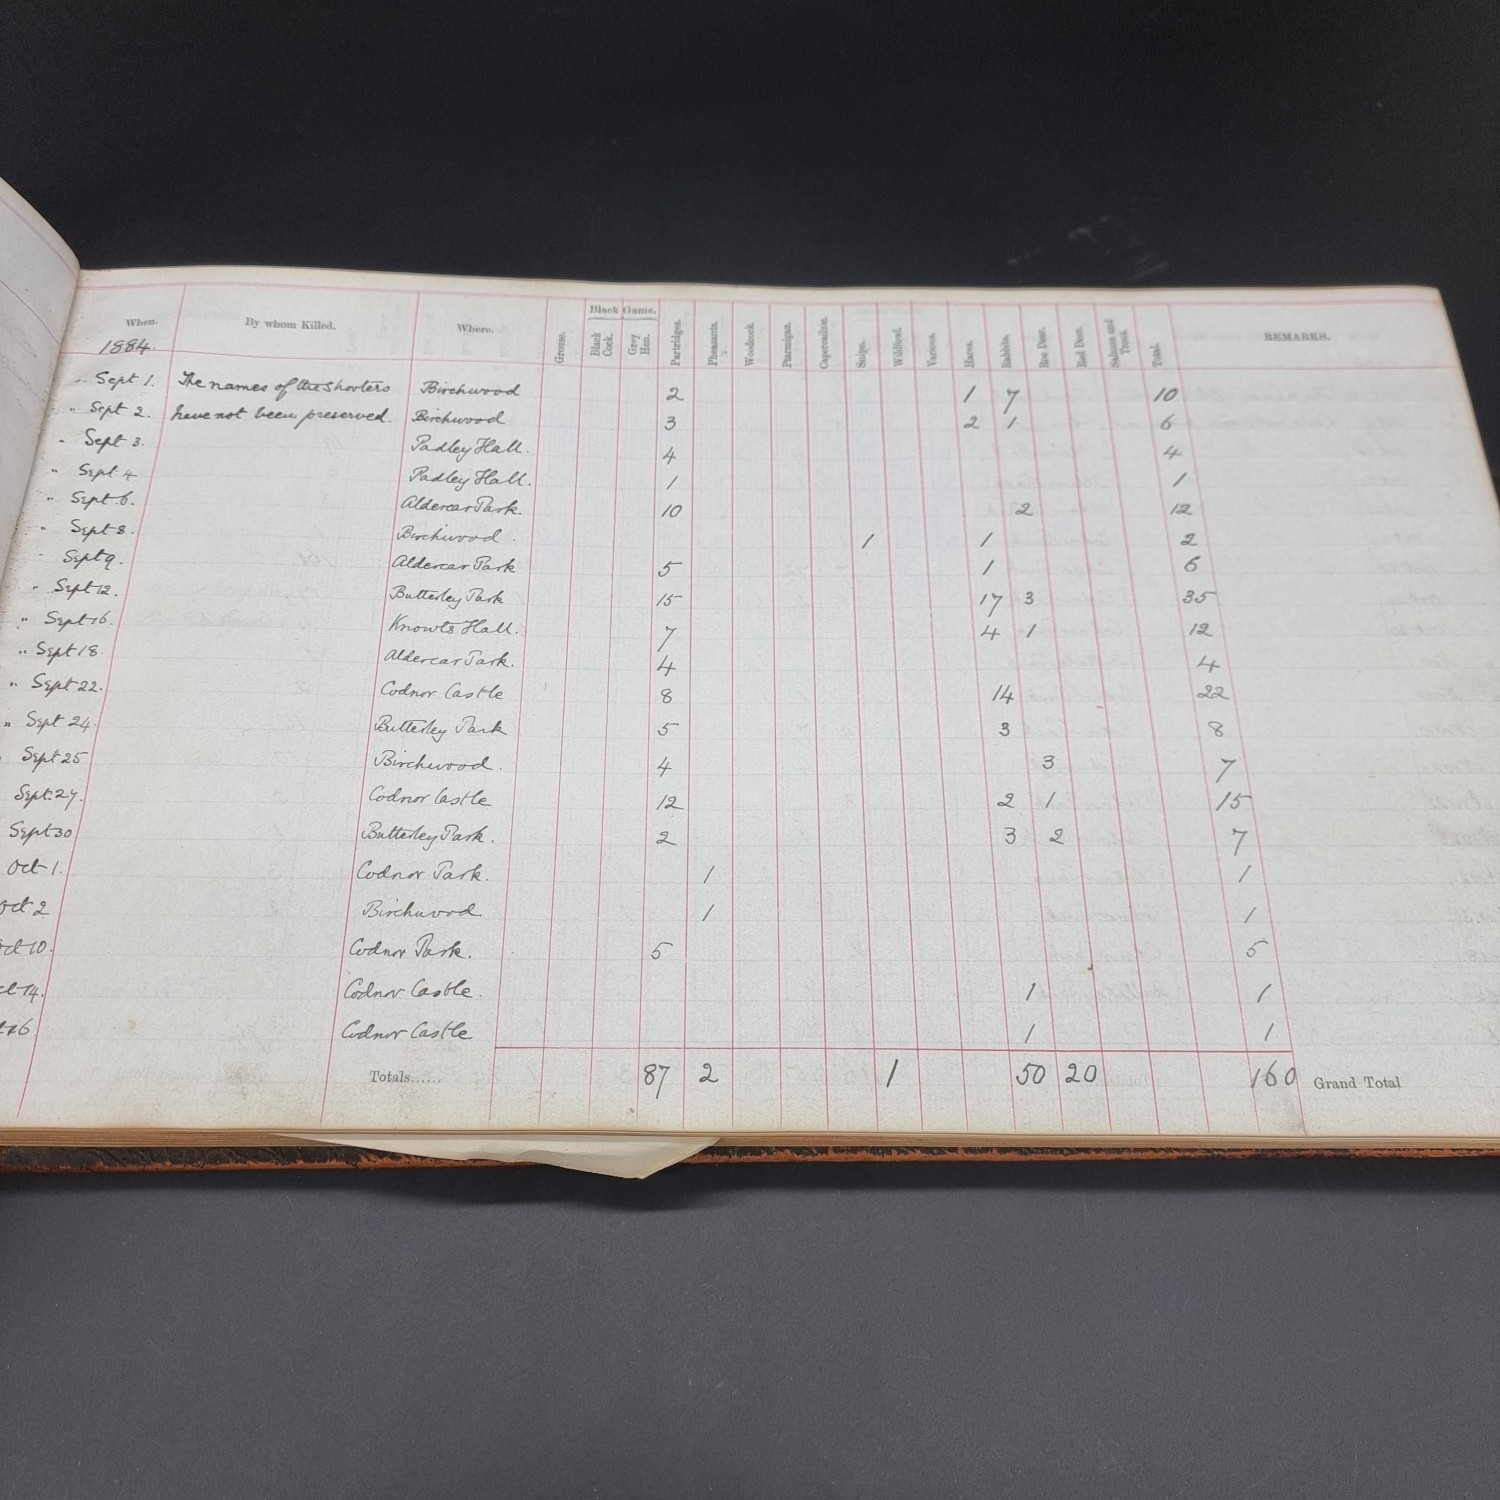 When. By whom Killed. Where. Grouse. Black Game. Black Cock. Grey Hen. Partridges. Pheasants. Woodcock. Ptarmigan. Capercailzie. Snipe. Wildfowl. Various. Hares. Rabbits. Roe Deer. Red Deer. Salmon and Trout. Total. REMARKS.
1884.
" Sept 1. The names of the shooters Birchwood 2 1 7 10
" Sept 2. have not been preserved. Birchwood 3 2 1 6
" Sept 3. Padley Hall. 4 4
" Sept 4 Padley Hall. 1 1
" Sept 6. Aldercar Park. 10 2 12
" Sept 8. Birchwood. 1 1 2
" Sept 9. Aldercar Park 5 1 6
" Sept 12. Butterley Park 15 17 3 35
" Sept 16. Knowts Hall. 7 4 1 12
" Sept 18. Aldercar Park. 4 4
" Sept 22. Codnor Castle 8 14 22
" Sept 24. Butterley Park 5 3 8
Sept 25 Birchwood. 4 3 7
Sept. 27. Codnor Castle 12 2 1 15
Sept 30 Butterley Park. 2 3 2 7
Oct 1. Codnor Park. 1 1
Oct 2 Birchwood 1 1
Oct 10. Codnor Park. 5 5
14. Codnor Castle. 1 1
16. Codnor Castle 1 1
Totals...... 87 2 1 50 20 160 Grand Total